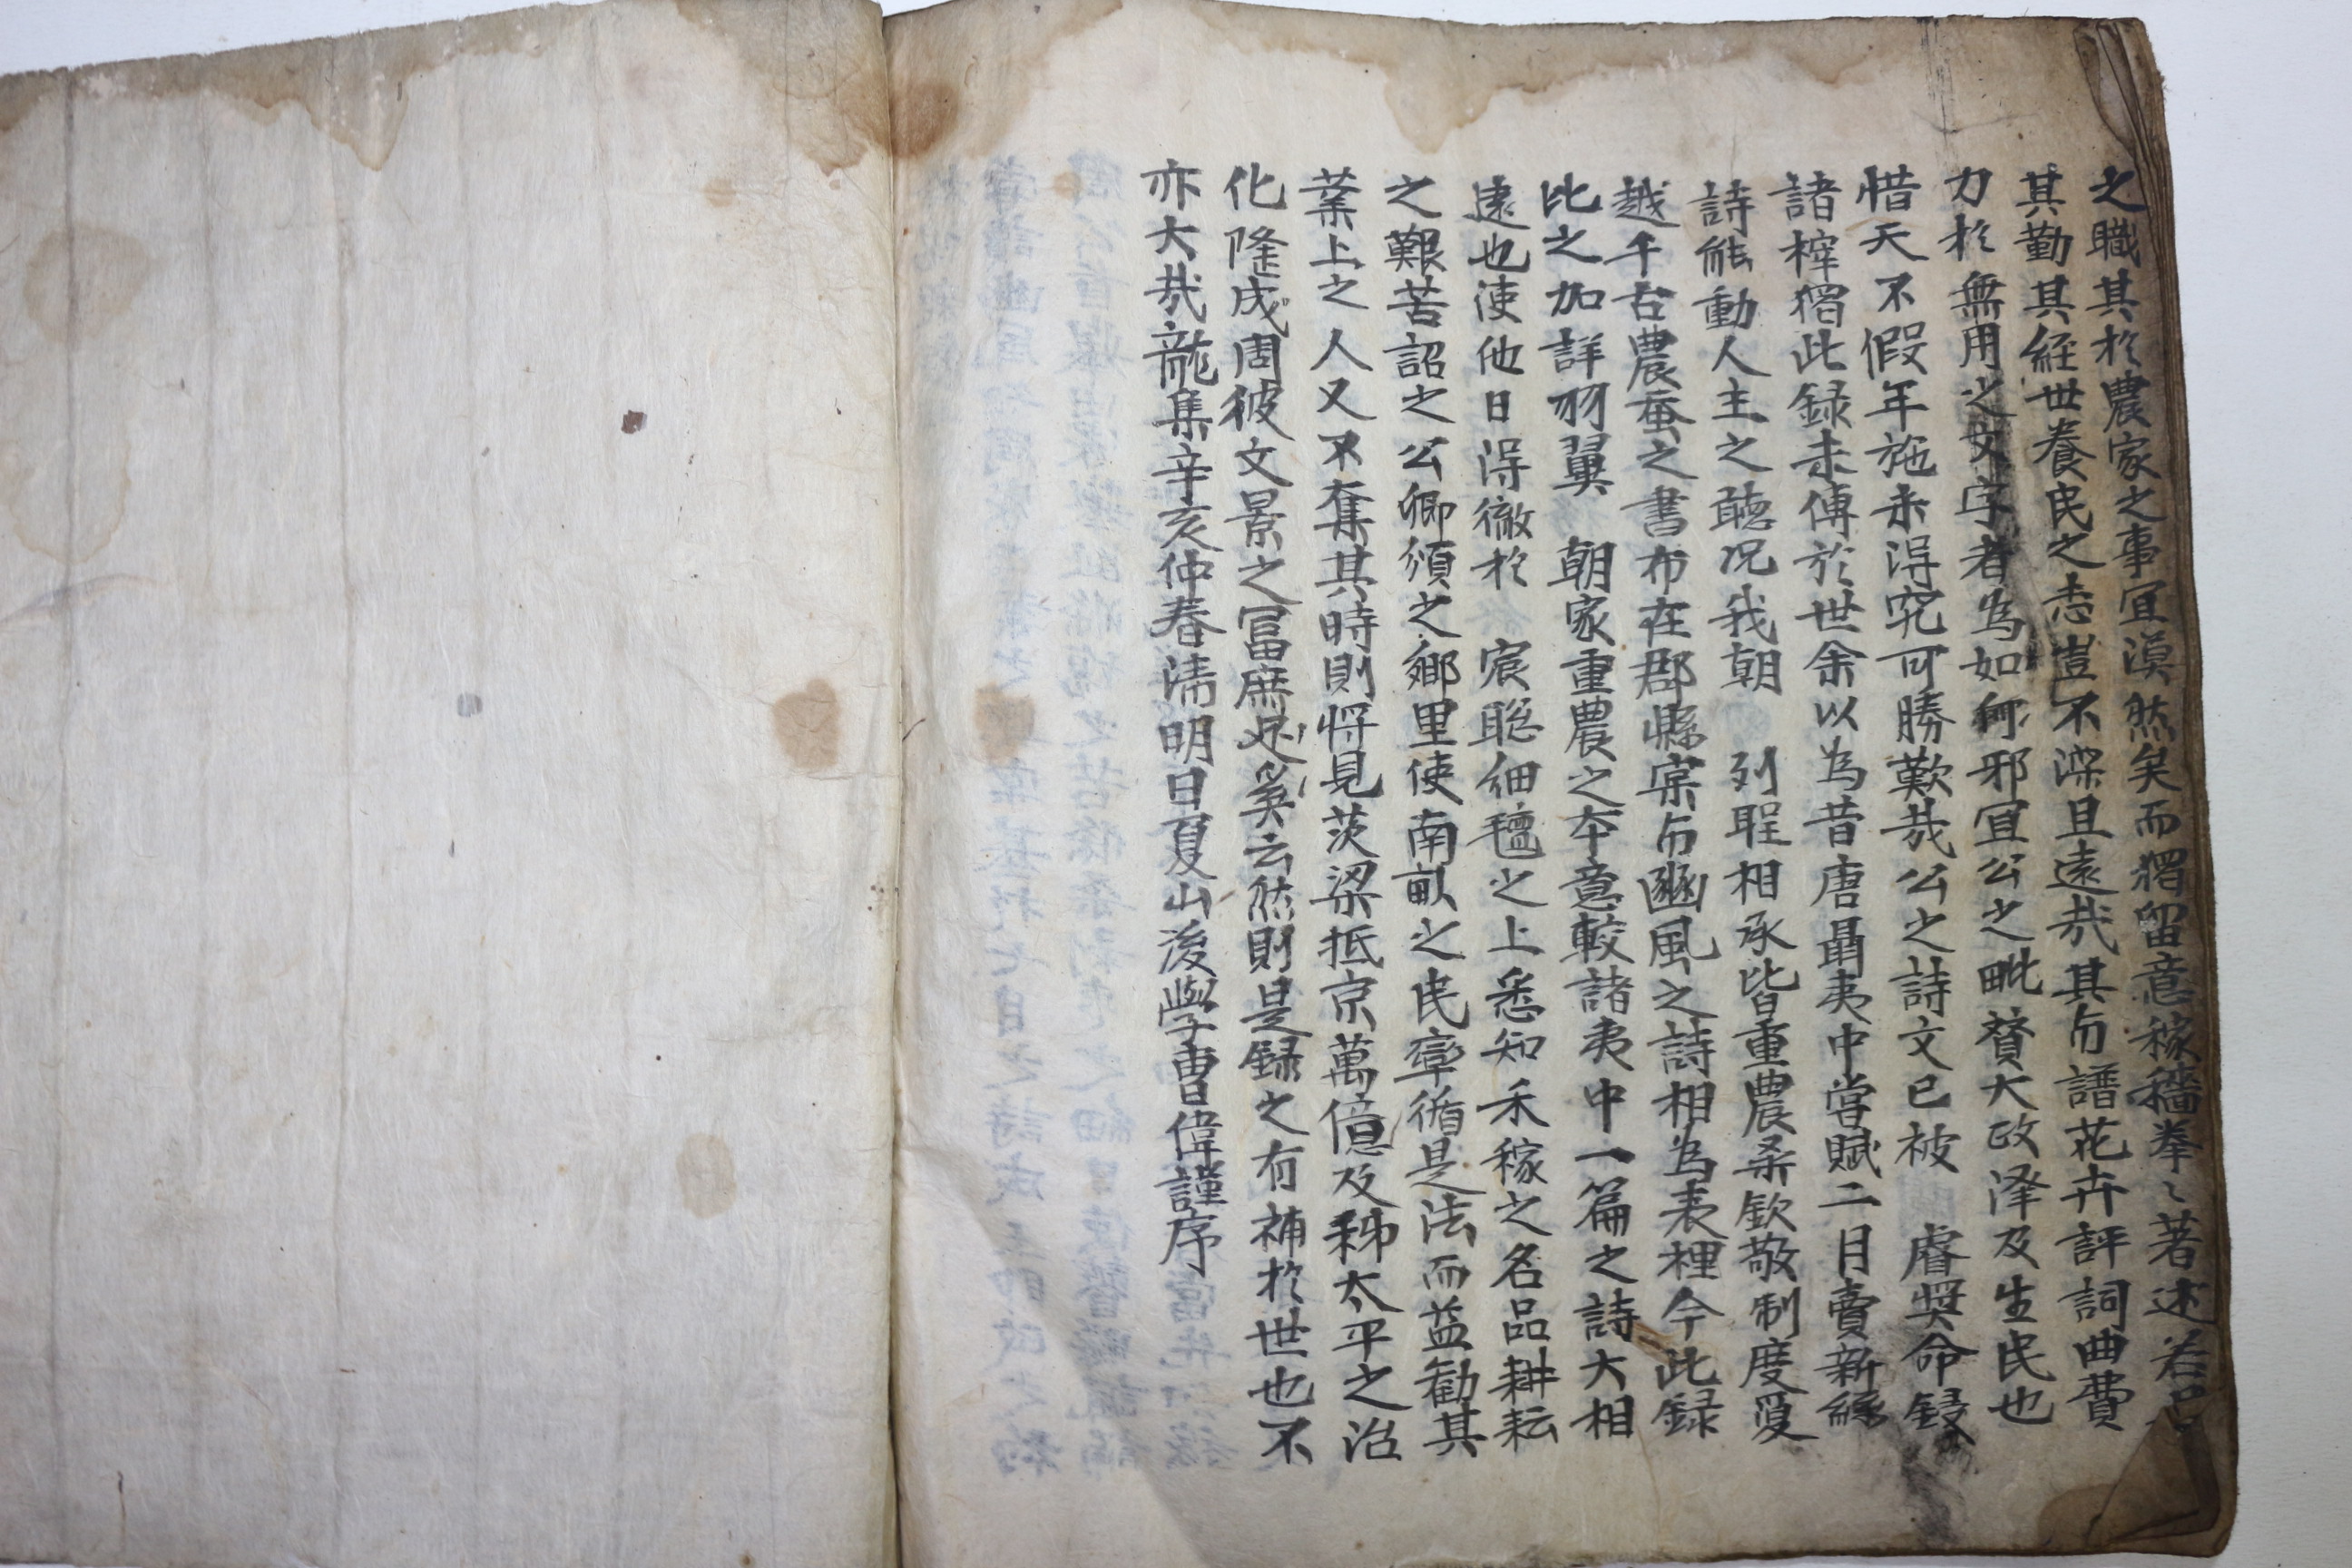 之職其於農家之事宜漠然矣而獨留意稼穡拳〻著述若是
其勤其經世養民之志豈不深且遠哉其与譜花卉評詞曲費
力於無用之文字者為如何邪宜公之毗賛大政澤及生民也
惜天不假年施未淂究可勝歎哉公之詩文已被 睿奬命鋟
諸梓獨此録未傳於世余以為昔唐聶夷中嘗賦二月賣新絲
詩能動人主之聴况我朝 列聖相承皆重農桑欽敬制度夐
越千古農蚕之書布在郡縣宲与豳風之詩相為表裡今此録
比之加詳羽翼 朝家重農之本意較諸夷中一篇之詩大相
遠也使他日淂徹於 宸聡細氊之上悉知禾稼之名品耕耘
之艱苦詔之公卿頒之郷里使南畝之民率循是法而益勸其
業上之人又不奪其時則将見茨梁抵京萬億及秭太平之治
化隆成周彼文景之冨庶迟奚云然則是録之有補於世也不
亦大㢤龍集辛亥仲春淸明日夏山後學曺偉謹序